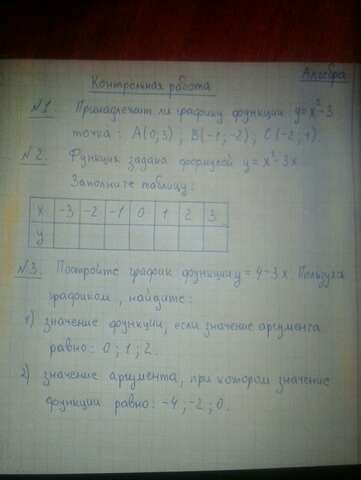 Алгебра
Контрольная работа
№1. Принадлежит ли графику функции y=x²-3
точка: A(0;3), B(-1;-2), C(-2;1).
№2. Функция задана формулой y=x²-3x
Заполните таблицу:
x -3 -2 -1 0 1 2 3
y
№3. Постройте график функции y=4-3x. Пользуясь
графиком, найдите:
1) значение функции, если значение аргумента
равно: 0; 1; 2.
2) значение аргумента, при котором значение
функции равно: -4; -2; 0.